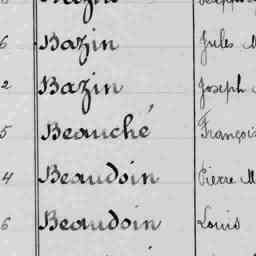 6 Bazin Jules
2 Bazin Joseph
5 Beauché François
4 Beaudoin Pierre M
6 Beaudoin Louis